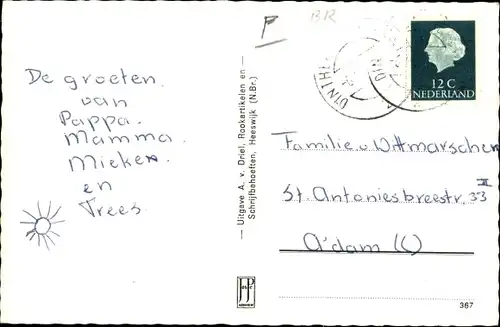 P
BR
DINTHER
12 C
NEDERLAND
De groeten
van
Pappa.
Mamma.
Mieken.
en
Trees
— Uitgave A. v. Driel, Rookartikelen en —
Schrijfbehoeften, Heeswijk (N.Br.)
Familie v Wittmarschen
St. Antoniesbreestr. 33 II
A'dam (C)
367